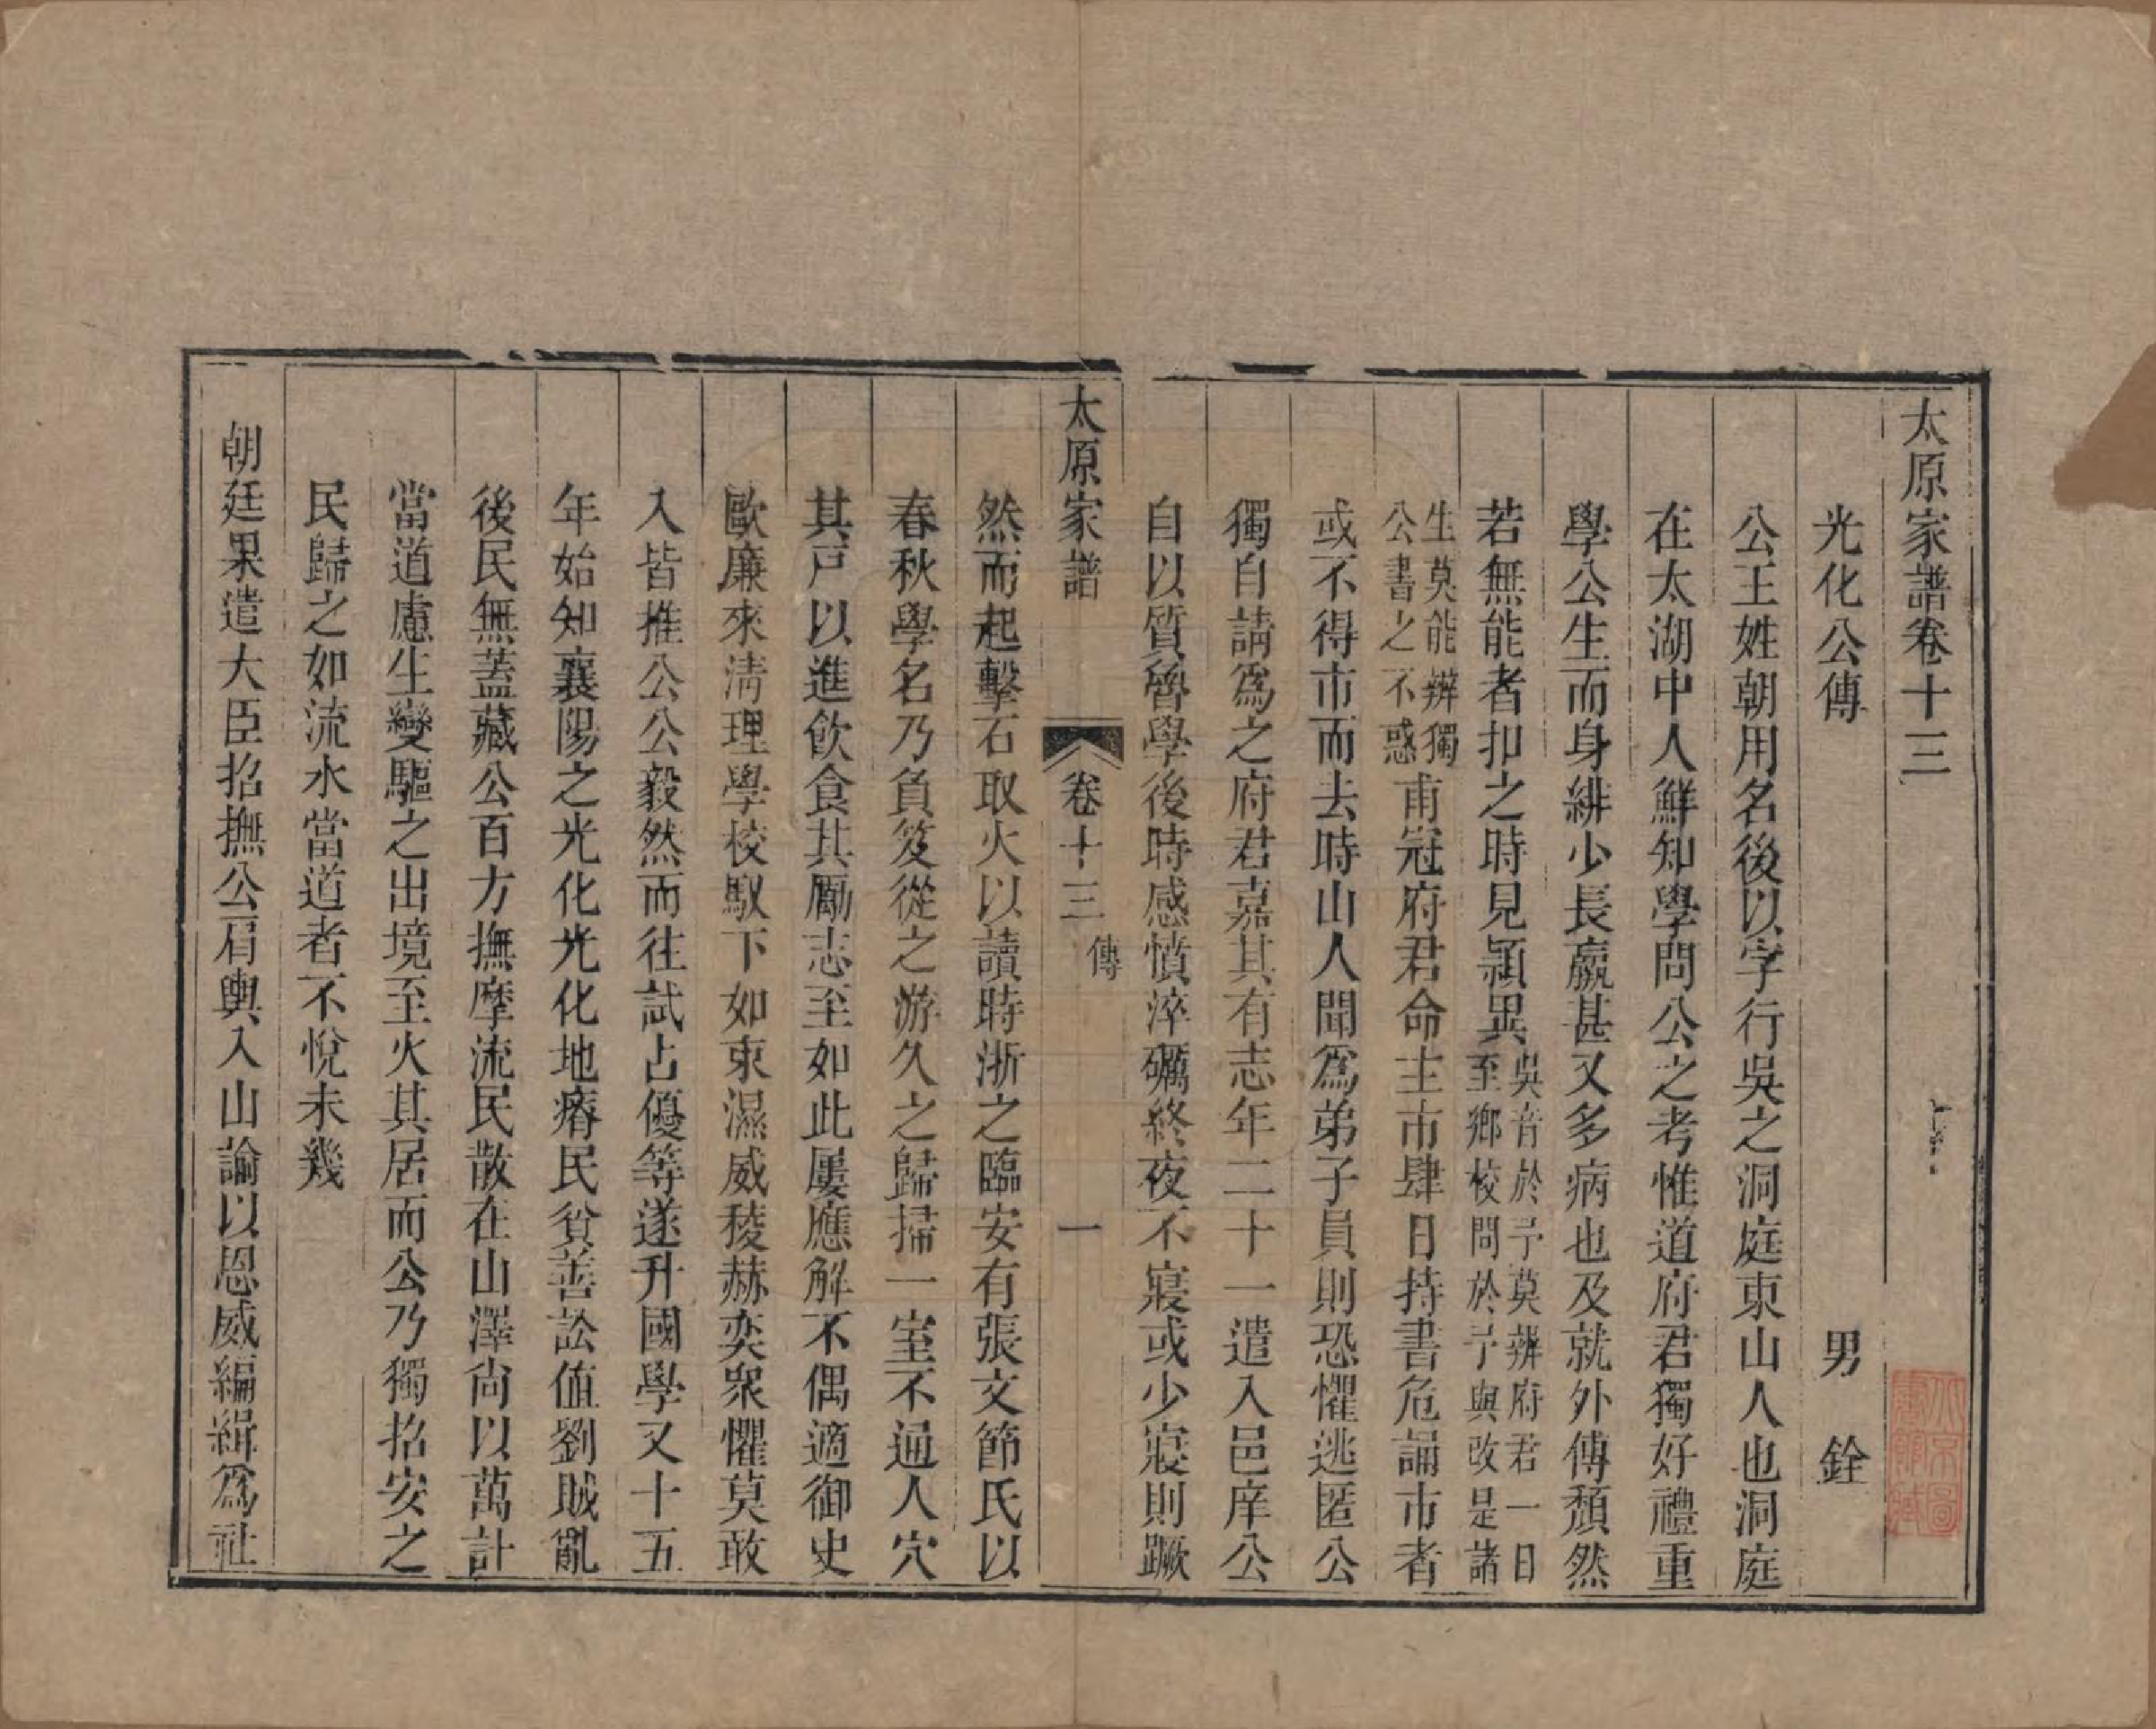 太原家譜卷十三
光化公傳　男　銓
公王姓朝用名後以字行吳之洞庭東山人也洞庭
在太湖中人鮮知學問公之考惟道府君獨好禮重
學公生而身緋少長羸甚又多病也及就外傅頹然
若無能者扣之時見穎異吳音於予莫辨府君一日至鄉校問於予與改是諸
生莫能辨獨公書之不惑甫冠府君命主市肆日持書危誦市者
或不得市而去時山人聞爲弟子員則恐懼逃匿公
獨自請爲之府君嘉其有志年二十一遣入邑庠公
自以質魯學後時感憤淬礪終夜不寢或少寢則蹶
太原家譜　卷十三　傳　一
然而起擊石取火以讀時浙之臨安有張文節氏以
春秋學名乃負笈從之游久之歸掃一室不通人穴
其戸以進飲食其勵志至如此屢應解不偶適御史
歐廉來淸理學校馭下如束濕威稜赫奕衆懼莫敢
入皆推公公毅然而往試占優等遂升國學又十五
年始知襄陽之光化光化地瘠民貧善訟值劉賊亂
後民無蓋藏公百方撫摩流民散在山澤尙以萬計
當道慮生變驅之出境至火其居而公乃獨招安之
民歸之如流水當道者不悅未幾
朝廷果遣大臣招撫公肩輿入山諭以恩威編緝爲社